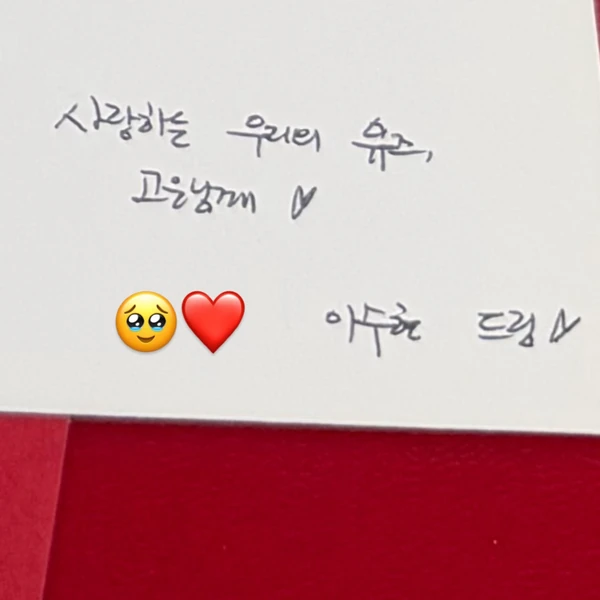 사랑하는 우리의 뮤즈,
고은님께 ♡
🥹❤️ 이수현 드림 ♡